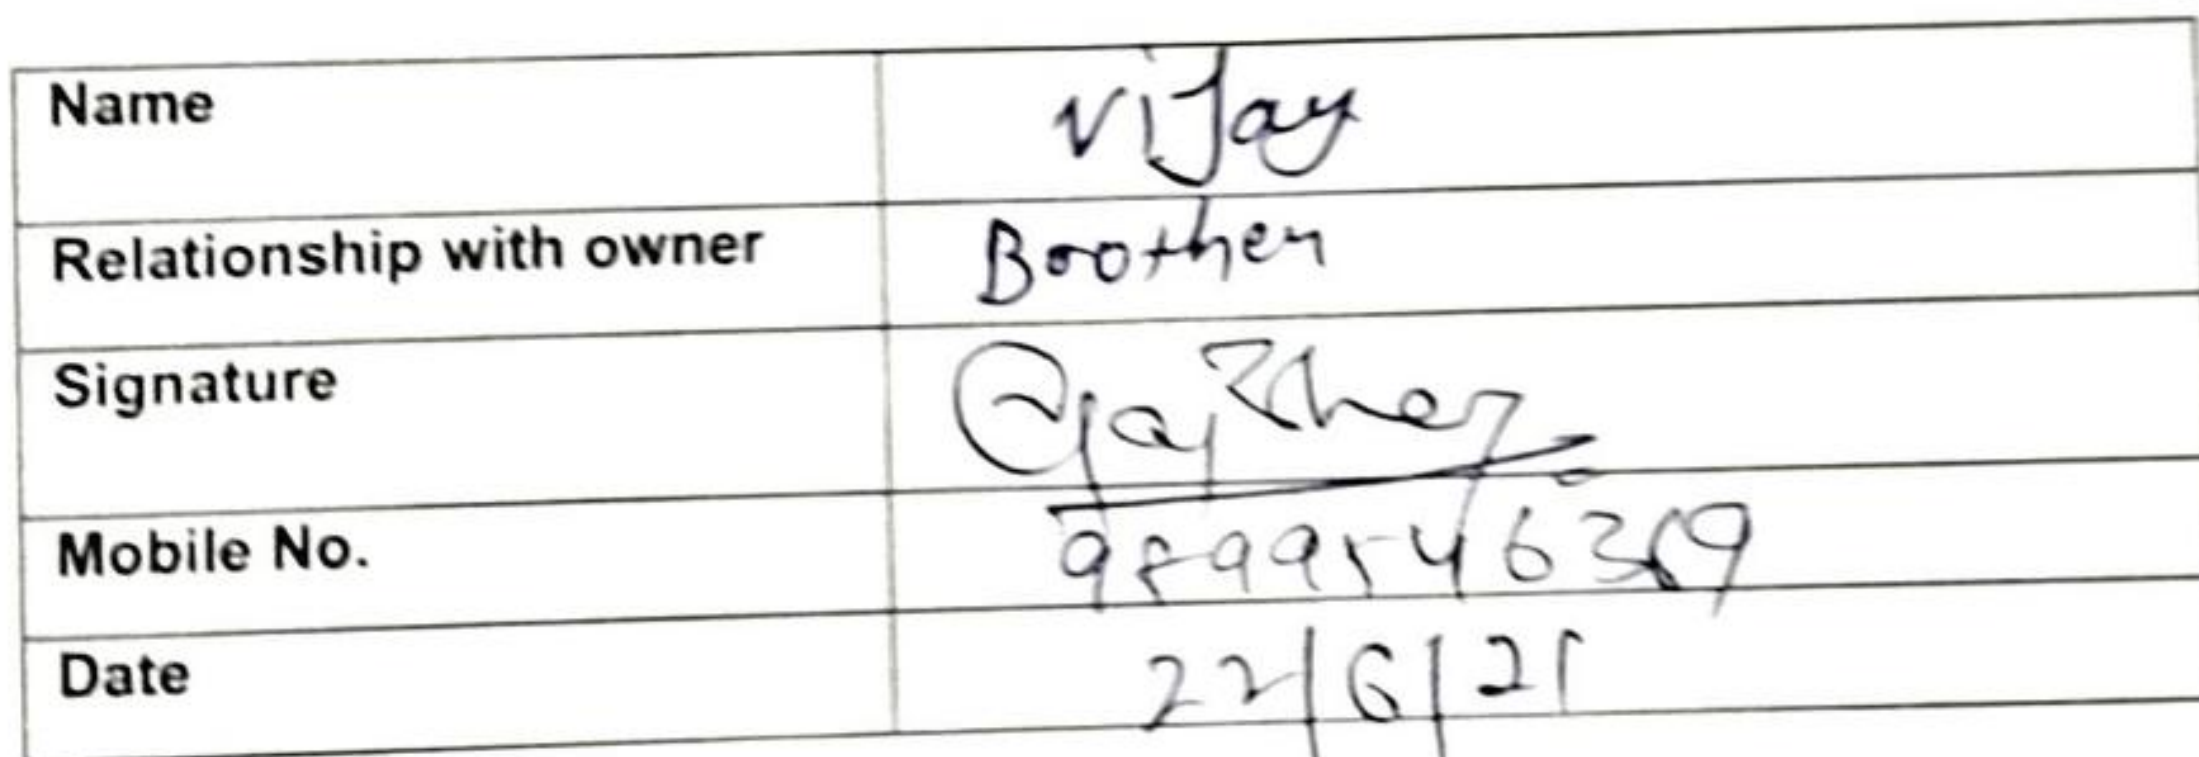 Name Vijay
Relationship with owner Brother
Signature
Mobile No.
Date 22/6/21